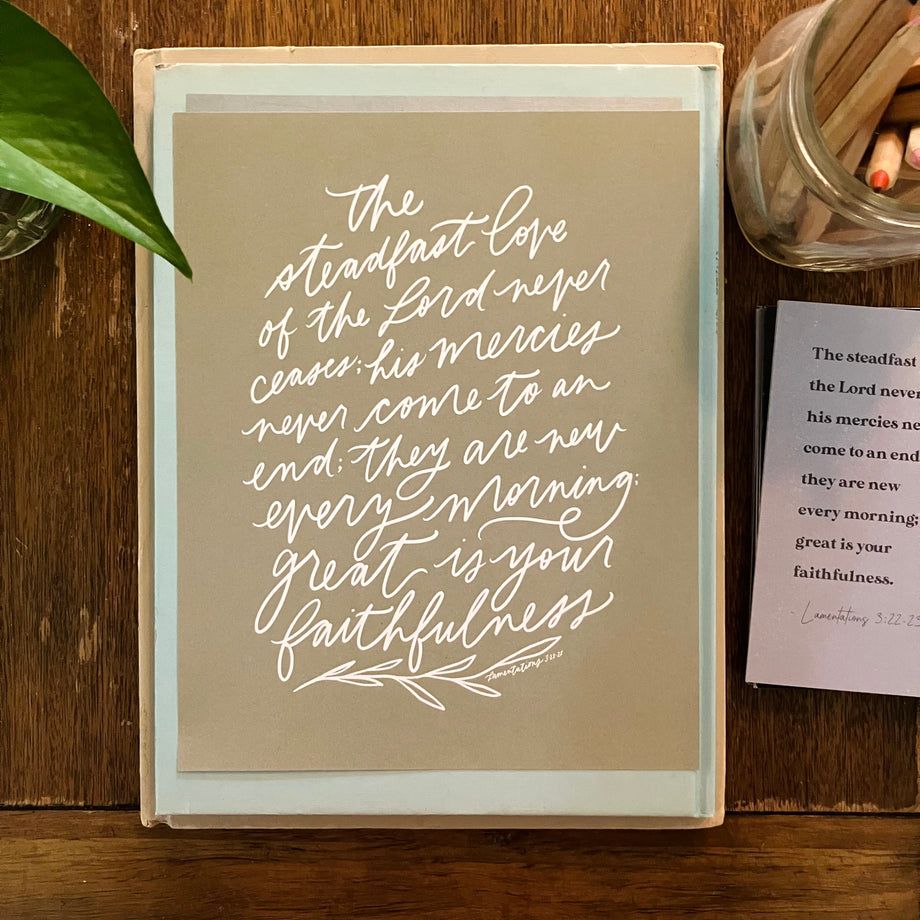 the
steadfast love
of the Lord never
ceases; his mercies
never come to an
end; they are new
every morning;
great is your
faithfulness
Lamentations 3:22-23
The steadfast
the Lord never
his mercies ne
come to an end
they are new
every morning;
great is your
faithfulness.
- Lamentations 3:22-23